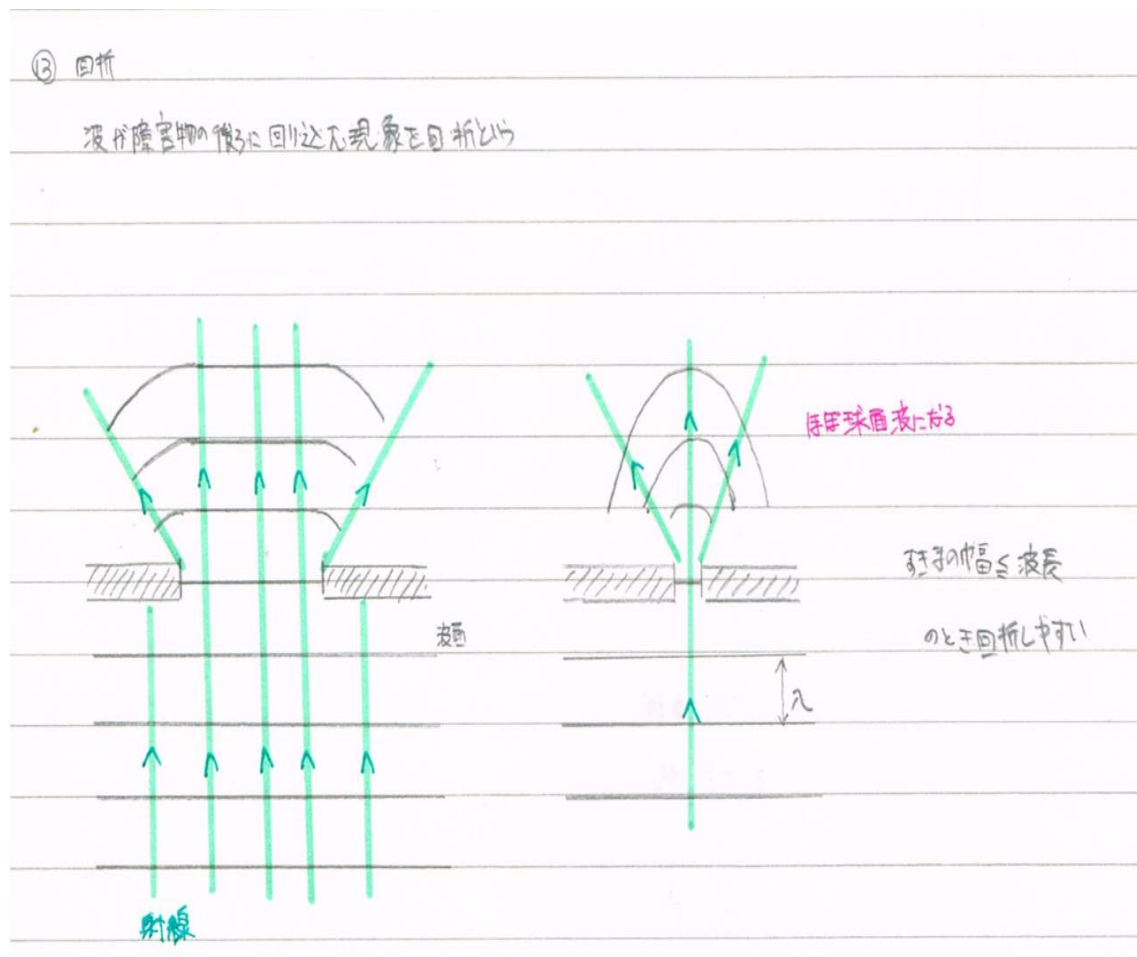 ⑬ 回折
波が障害物の後ろに回り込む現象を回折という
ほぼ球面波になる
すきまの幅≦波長
のとき回折しやすい
波面
λ
射線